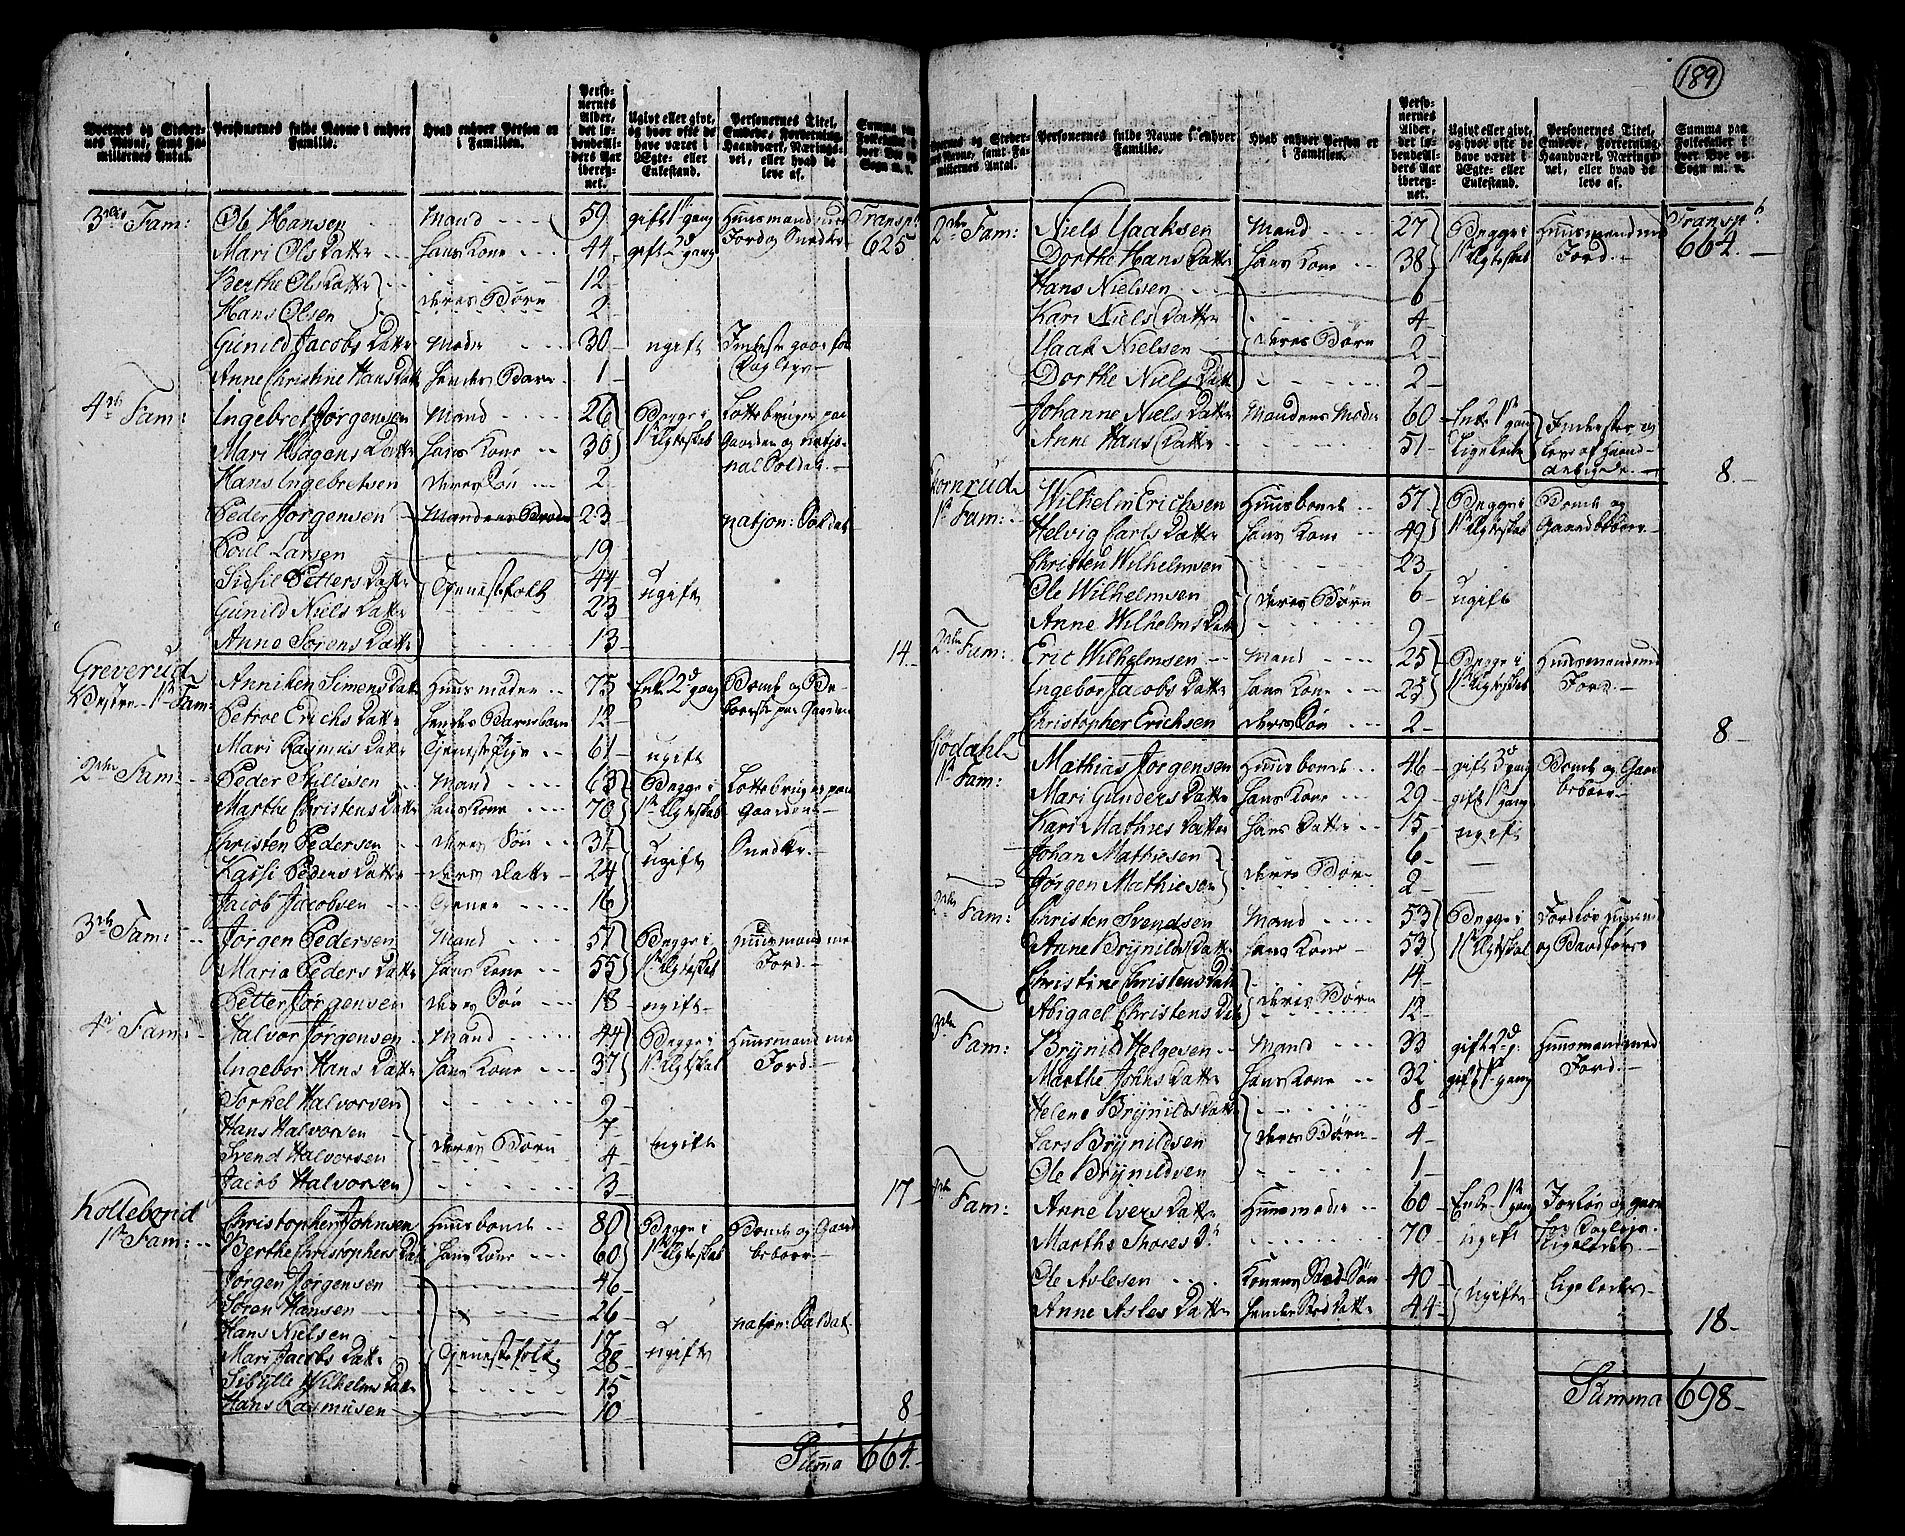 189
Byernes og Stedernes Navne, samt Familiernes Antal.
Personernes fulde Navne i enhver Familie.
Hvad enhver Person er i Familien.
Personernes Alder, det løbende Alders Aar iberegnet.
Ugivt eller givt, og hvor ofte de have været i Ægte- eller Enkestand.
Personernes Titel, Embede, Forretning, Haandværk, Næringsvei, eller hvad de leve af.
Summa paa Folketallet i hver Bye og Sogn m. v.
3die Fam: Ole Hansen Mand 59 gift 1te gang Huusmand med Transpt
Mari Ols Datter hans Kone 44 gift 2d gang Jord og Snedker 625
Berthe Ols Datter 12
Hans Olsen deres Børn 2
Gunild Jacobs Datter Moder 30 ugift Inderste
Anne Christine Hans Datt hendes Barn 1
4de Fam: Ingebret Jørgensen Mand 26 Begge i Lottebruger paa
Mari Haagens Datter hans Kone 30 1te Ægteskab Gaarden og natjonal Soldat
Hans Ingebretsen deres Søn 2
Peder Jørgensen 23 natjon: Soldat
Poul Larsen 19
Sidsil Petters Datter Tjenestefolk 44 ugift
Gunild Niels Datter 23
Anne Sørens Datter 13
14
Greverud
Vestre 1te Fam: Anniken Simens Datt Huusmoder 75 Enke 2d gang Bonde og Beboerske paa Gaarden
Petroe Erichs Datter hendes Barnebarn 12
Mari Rasmus Datter Tjeneste Pige 61 ugift
2den Fam: Peder Mand 63 Begge i Lottebruger paa
Marthe Christens Datt hans Kone 70 1te Ægteskab Gaarden
Christen Pedersen deres Søn 31 ugift Snedker
Kassi Peders Datter deres Datter 24
Jacob Jacobsen Tjener 16
3die Fam: Jørgen Pedersen Mand 51 Begge i Huusmand med
Maria Peders Datter hans Kone 55 1te Ægteskab Jord
Petter Jørgensen deres Søn 18 ugift
4de Fam: Halvor Jørgensen Mand 44 Begge i Huusmand med
Ingebor Hans Datter hans Kone 37 1te Ægteskab Jord
Torkel Halvorsen 9
Hans Halvorsen 7
Svend Halvorsen deres Børn 4 ugift
Jacob Halvorsen 3
17
Kollebond
1te Fam: Christopher Johnsen Huusbonde 80 Begge i Bonde og Gaard
Berthe Christophers Dat hans Kone 60 1te Ægteskab beboer
Jørgen Jørgensen 46
Søren Hansen 26 natjon: Soldat
Hans Nielsen 17
Mari Jacobs Datt Tjenestefolk 28 ugift
Sibylle Wilhelms Datt 15
Hans Rasmusen 10
8
Summa 664
Byernes og Stedernes Navne, samt Familiernes Antal.
Personernes fulde Navne i enhver Familie.
Hvad enhver Person er i Familien.
Personernes Alder, det løbende Alders Aar iberegnet.
Ugivt eller givt, og hvor ofte de have været i Ægte- eller Enkestand.
Personernes Titel, Embede, Forretning, Haandværk, Næringsvei, eller hvad de leve af.
Summa paa Folketallet i hver Bye og Sogn m. v.
2den Fam: Niels Isaaksen Mand 27 Begge i Huusmand med Transpt
Dorthe Hans Datter hans Kone 38 1te Ægteskab Jord 664
Hans Nielsen 6
Kari Niels Datter 4
Isaak Nielsen deres Børn 2
Dorthe Niels Datt 2
Johanne Niels Datter Mandens Moder 60 Enke 1te gang Inderster og
Anne Hans Datter 51 Ligeledes leve af Haandarbeyde
8
1te Fam: Wilhelm Erichsen Huusbonde 57 Begge i Bonde og
Helvig Carls Datter hans Kone 49 1te Ægteskab Gaardbeboer
Christen Wilhelmsen 23
Ole Wilhelmsen deres Børn 6 ugift
Anne Wilhelms Datt 2
2den Fam: Eric Wilhelmsen Mand 25 Begge i Huusmand med
Ingebor Jacobs Datter hans Kone 25 1te Ægteskab Jord
Christopher Erichsen deres Søn 2
8
Gjödahl
1te Fam: Mathias Jørgensen Huusbonde 46 gift 3d gang Bonde og Gaard
Mari Gunders Datter hans Kone 29 gift 1te gang beboer
Kari Mathies Datter hans Datter 15 ugift
Johan Mathiesen 6
Jørgen Mathiesen deres Børn 2
2den Fam: Christen Svendsen Mand 53 Begge i
Anne Brynilds Datt hans Kone 53 1te Ægteskab
Christine Christens Datt 14
Abigael Christens Datt deres Børn 12
3die Fam: Brynild Helgesen Mand 33 gift 2d g: Huusmand med
Marthe Johns Datter hans Kone 32 gift 1te gang Jord
Helene Brynilds Datt 8
Lars Brynildsen deres Børn 4
Ole Brynildsen 1
4de Fam: Anne Ivers Datter Huusmoder 60 Enke 1te gang
Marthe Thores Dr 70 ugift
Ole Aslesen Konens Sted Søn 40 Ugifte Ligeledes
Anne Asles Datter hendes Sted Datter 44
18
Summa 698